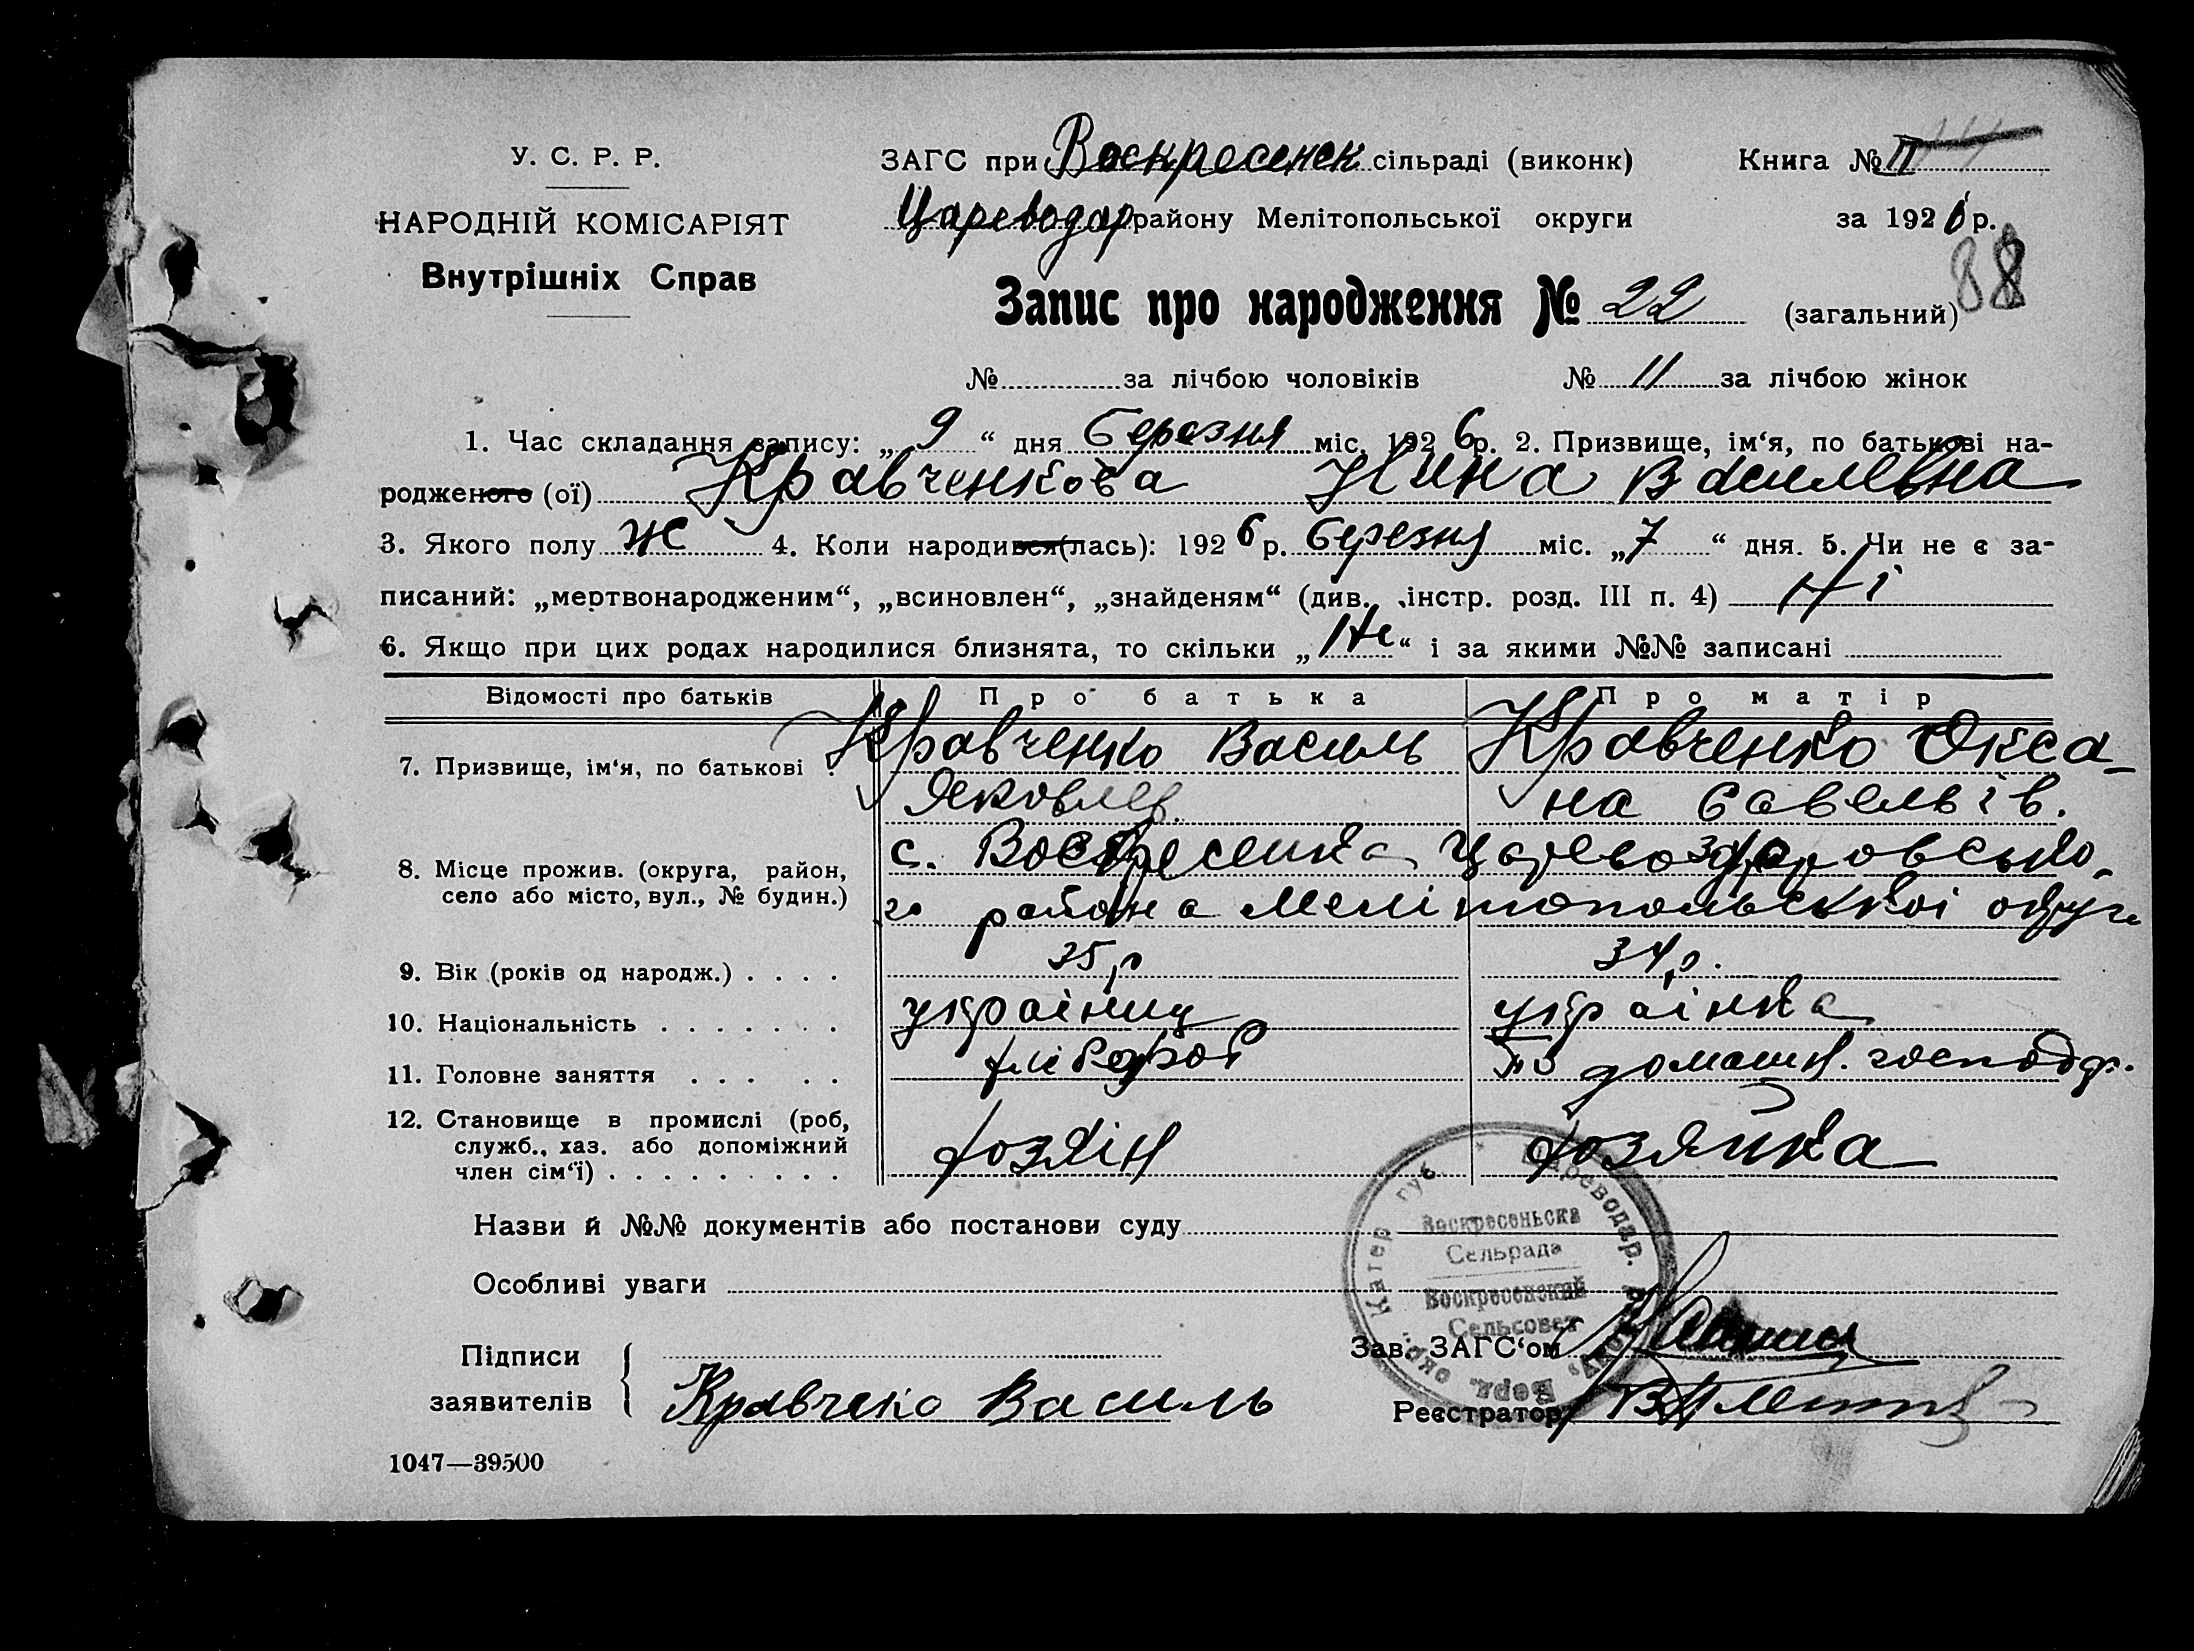 У. С. Р. Р.
НАРОДНІЙ КОМІСАРІЯТ
Внутрішніх Справ
ЗАГС при Воскресенск сільраді (виконк)
Книга № II
Цареводар району Мелітопольської округи
за 1926 р.
88
Запис про народження № 22 (загальний)
№ за лічбою чоловіків № 11 за лічбою жінок
1. Час складання запису: „ 9 “ дня березня міс. 1926 р. 2. Призвище, ім‘я, по батькові на-
родженого (ої) Кравченкова Нина Василевна
3. Якого полу Ж 4. Коли народився(лась): 1926 р. березня міс. „ 7 “ дня. 5. Чи не є за-
писаний: „мертвонародженим“, „всиновлен“, „знайденям“ (див. інстр. розд. III п. 4) Ні
6. Якщо при цих родах народилися близнята, то скільки „ Не “ і за якими №№ записані
Відомості про батьків Про батька Про матір
7. Призвище, ім‘я, по батькові . Кравченко Василь Кравченко Окса-
Яковлев. на Савельів.
8. Місце прожив. (округа, район,
село або місто, вул., № будин.)
с. Воскресенка Царевоздаровсько-
го района Мелітопольської округи
9. Вік (років од народж.) . . . . 35 р 34 р.
10. Національність . . . . . . . українец українка
11. Головне заняття . . . . . хлібороб По домашн. господ.
12. Становище в промислі (роб,
служб., хаз. або допоміжний
член сім‘ї) . . . . . . . . . хозяін хозяйка
Назви й №№ документів або постанови суду
Особливі уваги
Воскресеньска
Сельрада
Воскресенский
Сельсовет
Цареводар.
Бердя. окр.
Підписи
заявителів
Кравчеко Василь
Зав. ЗАГС‘ом
Реєстратор
1047—39500